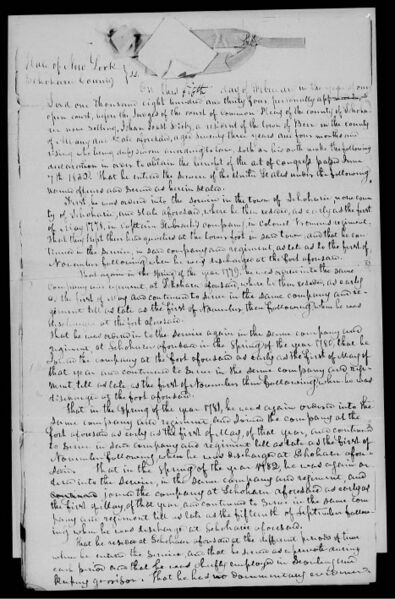 State of New York
Schoharie County } ss.
On this day of February in the year of our
Lord one Thousand eight hundred and thirty four, personally appeared in
open court, before the Judges of the court of common Pleas of the county of Schoha
rie now sitting, Johan Jost a resident of the town of in the county
of and State aforesaid, aged seventy three years and four months and
who being duly sworn according to law, doth on his oath make the following
declaration in order to obtain the benefit of the act of congress passed June
7th 1832. That he entered the service of the United States under the following
named officers and served as herein stated.
First he was ordered into the service in the town of Schoharie now coun
ty of Schoharie, and state aforesaid, where he then resided, as early as the first
of May 1778, in Captain company, in Colonel Vromans regiment,
That they kept their head quarters at the fort in said town, and that he con
tinued in the service, in said company and regiment, as late as to the first of
November following when he was discharged at the fort aforesaid.
That again in the Spring of the year 1779, he was again into the same
company and regiment at Schoharie aforesaid, where he then resided, as early
as the first of May and continued to serve in the same company and re-
giment till as late as the first of November then following when he was
discharged at the fort aforesaid.
That he was ordered in to the service again in the same company and
regiment at Schoharie aforesaid in the Spring of the year 1780, that he
joined the company at the fort aforesaid as early as the first of May of
that year and continued to serve in the same company and regi-
ment, till as late as the first of November then following when he was
discharged at the fort aforesaid.
That in the spring of the year 1781, he was again ordered into the
same company and regiment and joined the company at the
fort aforesaid as early as the first of May, of that year, and continued
to serve in said company and regiment till as late as the first of
November following when he was discharged at Schoharie afore-
said. That in the Spring of the year 1782, he was again or
dered into the service, in the same company and regiment, and
joined the company at Schoharie aforesaid as early as
the first of May of that year and continued to serve in the same com-
pany and regiment till as late as the fifteenth of September follow-
ing when he was discharged at Schoharie aforesaid.
That he resided at Schoharie aforesaid at the different periods of time
when he entered the service, and that he served as a private during
each period and that he was chiefly employed in Scouting and
keeping garrison. That he has no documentary evidence